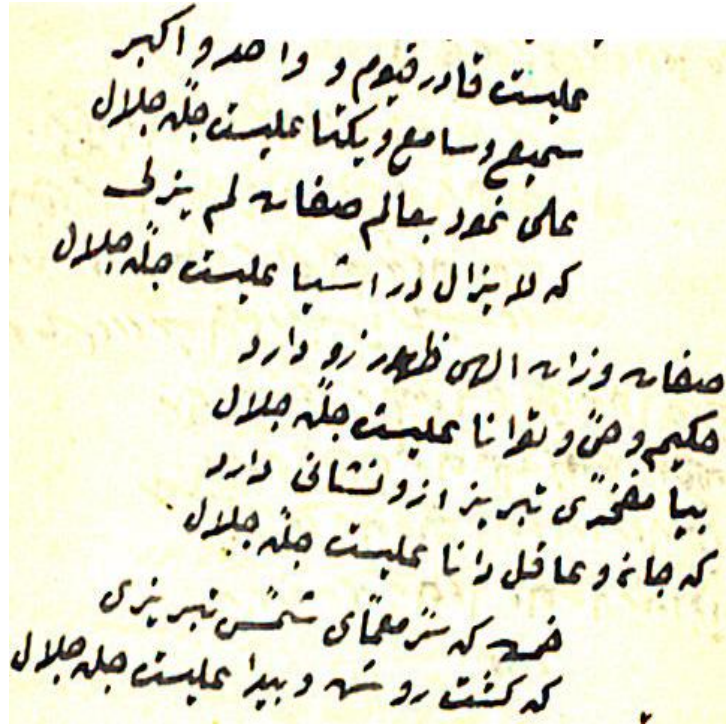 علیست قادر قیوم و واحد و اکبر
سمیع و سامع و یکتا علیست جلّه جلال
علی نمود بعالم صفات لم یزلی
که لا یزال در اشیا علیست جلّه جلال
صفات و ذات الهی ظهور زو دارد
حکیم و حیّ و توانا علیست جلّه جلال
بیا مفخّری تبریز ازو نشانی دارد
که جان و عاقل دانا علیست جلّه جلال
که سرّ معمّای شمس تبریزی
که گشت روشن و پیدا علیست جلّه جلال